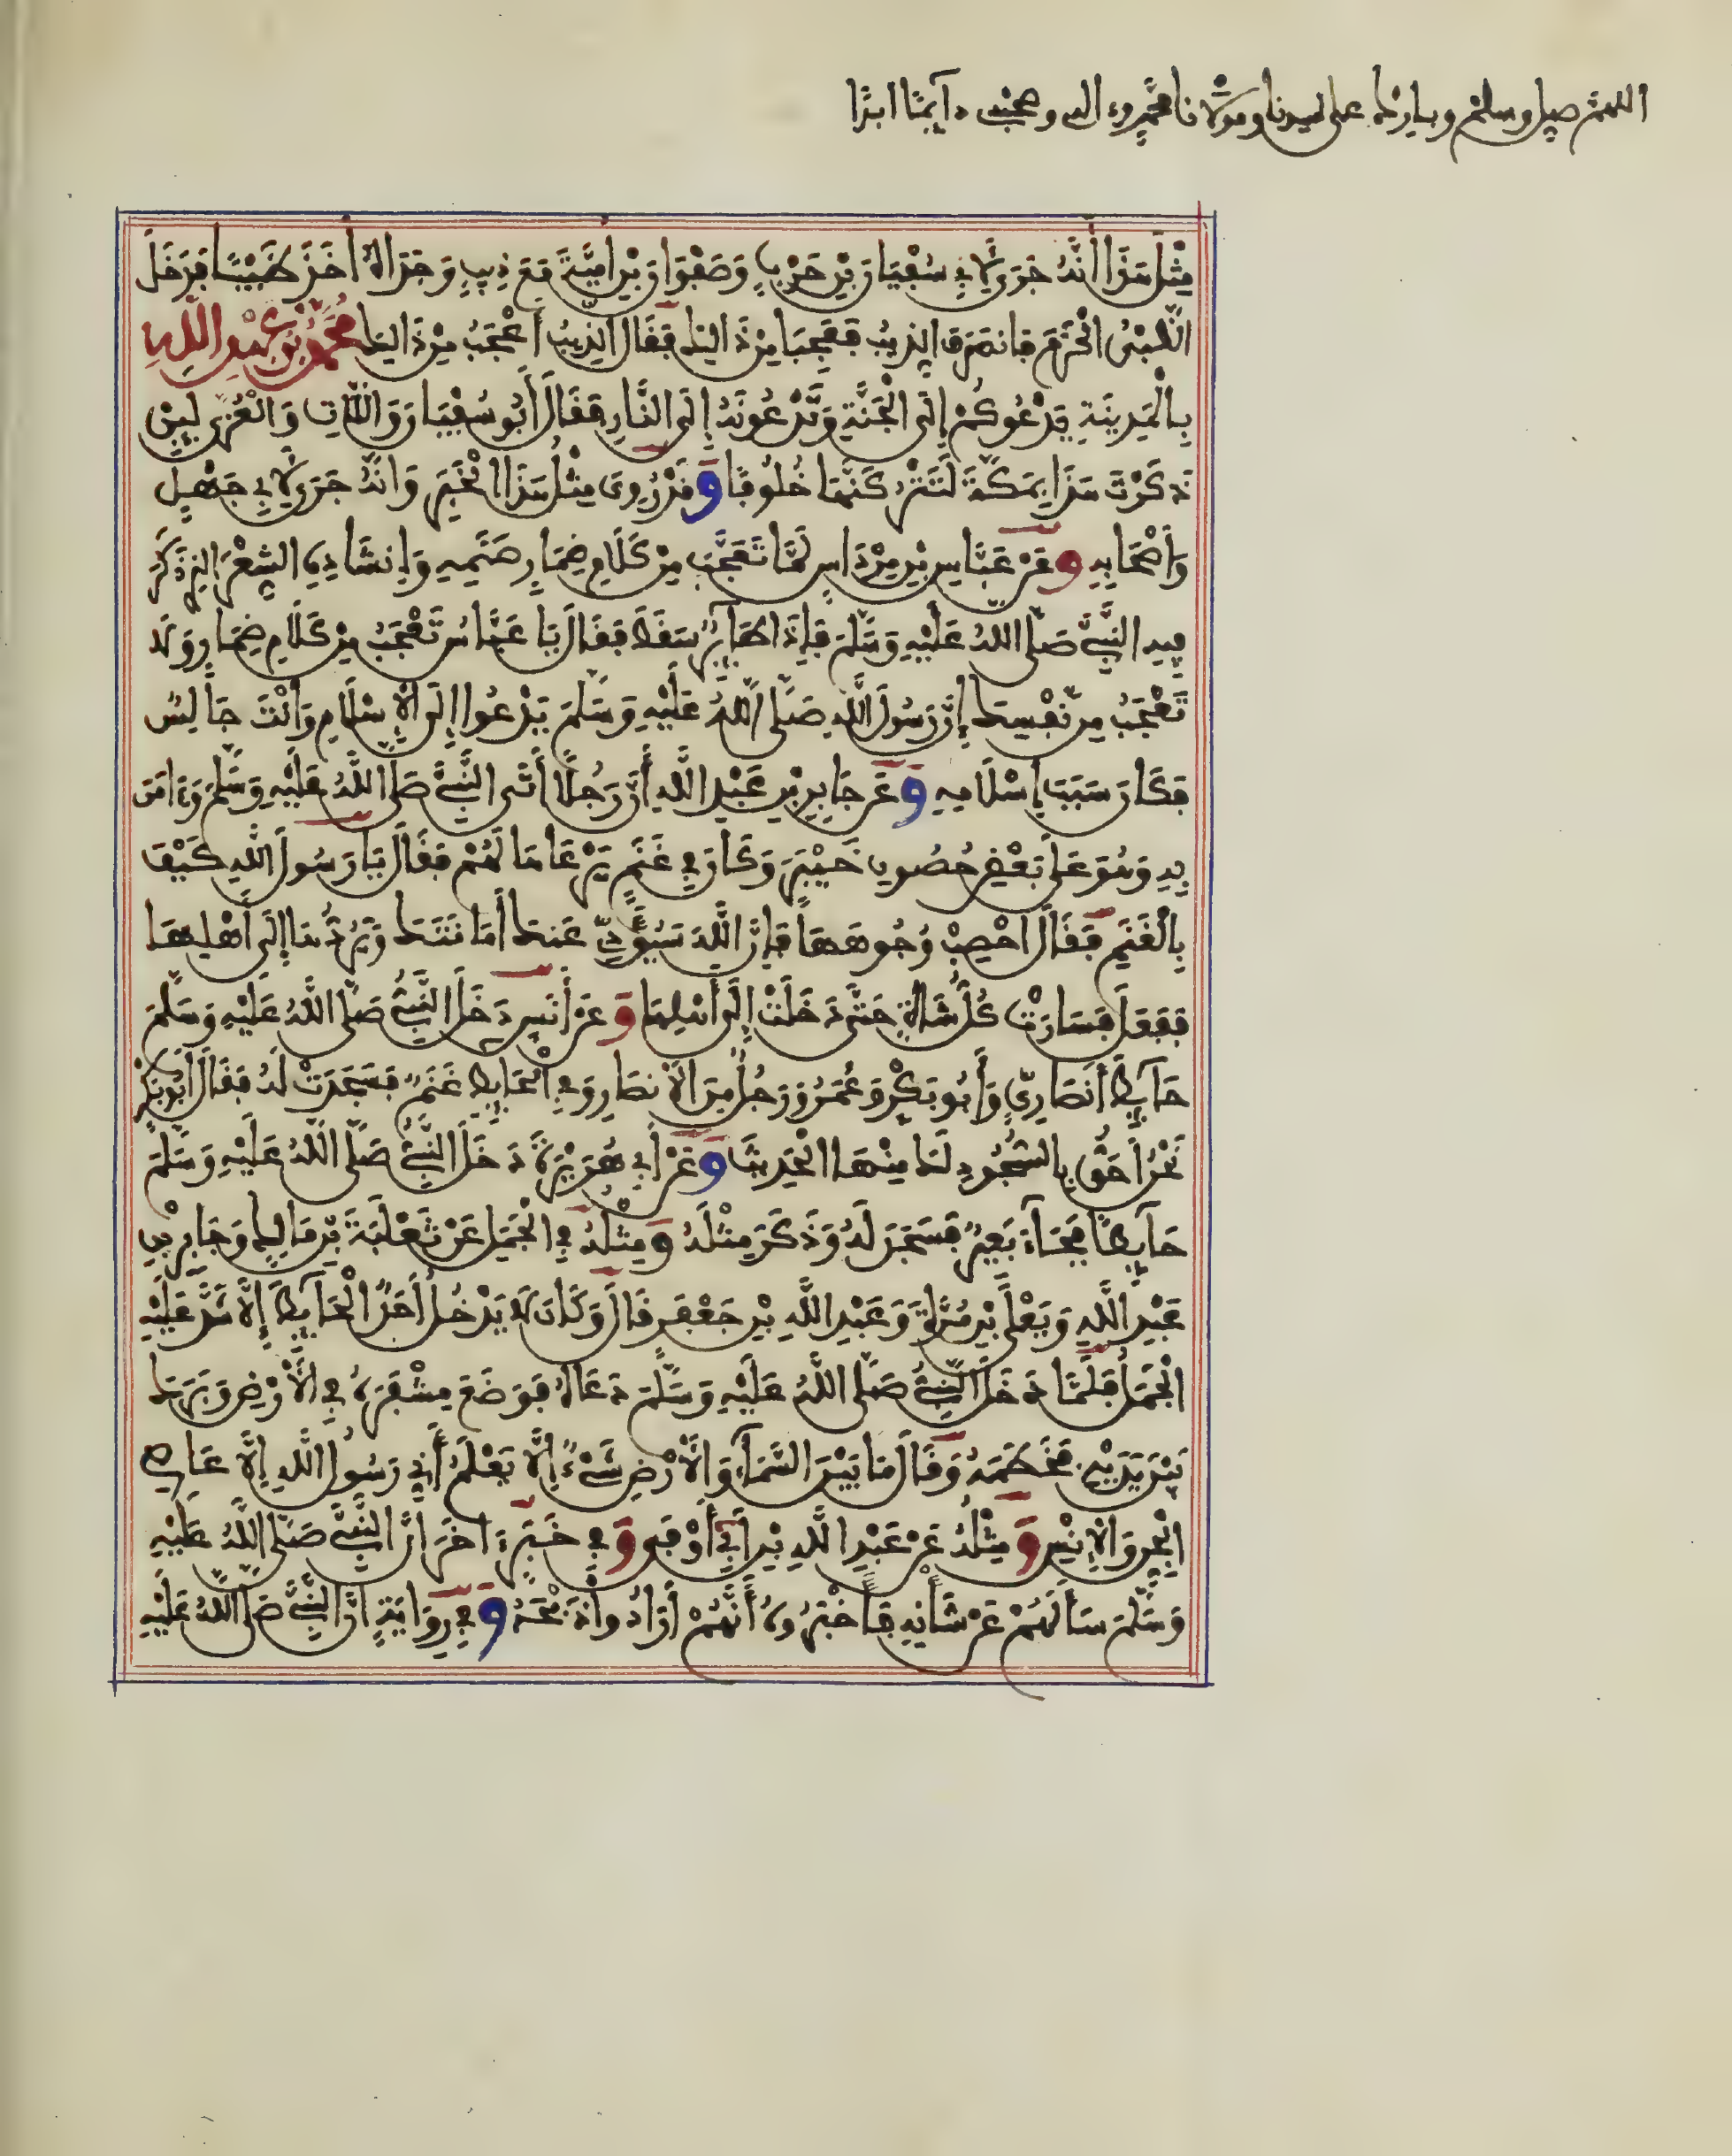 اللهم صل وسلم وبارك على سيدنا ومولانا محمد وءاله وصحبه دآيما ابدا
مِثْلَ هَذَا أَنَّهُ جَرَى لِأَبِي سُفْيَانَ بْنِ حَرْبٍ وَصَفْوَانَ بْنِ أُمَيَّةَ مَعَ ذِيبٍ وَجَدَاهُ أَخَذَ ظَبْيًا فَدَخَلَ
الظَّبْيُ الْحَرَمَ فَانصَرَفَ الذِّيبُ فَعَجِبَا مِنْ ذَالِكَ فَقَالَ الذِّيبُ أَعْجَبُ مِنْ ذَالِكَ مُحَمَّدُ بْنُ عَبْدِ اللَّهِ
بِالْمَدِينَةِ يَدْعُوكُمْ إِلَى الْجَنَّةِ وَتَدْعُونَهُ إِلَى النَّارِ فَقَالَ أَبُو سُفْيَانَ وَاللَّاتِ وَالْعُزَّى لَئِنْ
ذَكَرْتَ هَذَا بِمَكَّةَ لَتَتْرُكَنَّهَا خُلُوفًا وَقَدْ رُوِيَ مِثْلُ هَذَا الْخَبَرِ وَأَنَّهُ جَرَى لِأَبِي جَهْلٍ
وَأَصْحَابِهِ وَعَنْ عَبَّاسِ بْنِ مِرْدَاسٍ لَمَّا تَعَجَّبَ مِنْ كَلَامِ ضِمَارِ صَنَمِهِ وَإِنشَادِهِ الشِّعْرَ الذِي ذَكَرَ
فِيهِ النَّبِيَّ صَلَّى اللَّهُ عَلَيْهِ وَسَلَّمَ فَإِذَا طَايِرٌ سَقَطَ فَقَالَ يَا عَبَّاسُ تَعْجَبُ مِنْ كَلَامِ ضِمَارِ وَلَا
تَعْجَبُ مِن نَّفْسِكَ إِنَّ رَسُولَ اللَّهِ صَلَّى اللَّهُ عَلَيْهِ وَسَلَّمَ يَدْعُوا إِلَى الْإِسْلَامِ وَأَنْتَ جَالِسٌ
فَكَانَ سَبَبَ إِسْلَامِهِ وَعَن جَابِرِ بْنِ عَبْدِ اللَّهِ أَنَّ رَجُلًا أَتَى النَّبِيَّ صَلَّى اللَّهُ عَلَيْهِ وَسَلَّمَ وَءَامَنَ
بِهِ وَهُوَ عَلَى بَعْضِ حُصُونِ خَيْبَرَ وَكَانَ فِي غَنَمٍ يَرْعَاهَا لَهُمْ فَقَالَ يَا رَسُولَ اللَّهِ كَيْفَ
بِالْغَنَمِ فَقَالَ احْصِبْ وُجُوهَهَا فَإِنَّ اللَّهَ سَيُؤَدِّي عَنكَ أَمَانَتَكَ وَيَرُدُّهَا إِلَى أَهْلِهَا
فَفَعَلَ فَسَارَتْ كُلُّ شَاةٍ حَتَّى دَخَلَتْ إِلَى أَهْلِهَا وَعَنْ أَنَسٍ دَخَلَ النَّبِيُّ صَلَّى اللَّهُ عَلَيْهِ وَسَلَّمَ
حَآيِطَ أَنصَارِيٍّ وَأَبُو بَكْرٍ وَعُمَرُ وَرَجُلٌ مِنَ الْأَنصَارِ وَفِي الْحَايِطِ غَنَمٌ فَسَجَدَتْ لَهُ فَقَالَ أَبُو بَكْرٍ
نَحْنُ أَحَقُّ بِالسُّجُودِ لَكَ مِنْهَا الْحَدِيثَ وَعَنْ أَبِي هُرَيْرَةَ دَخَلَ النَّبِيُّ صَلَّى اللَّهُ عَلَيْهِ وَسَلَّمَ
حَآيِطًا فَجَآءَ بَعِيرٌ فَسَجَدَ لَهُ وَذَكَرَ مِثْلَهُ وَمِثْلُهُ فِي الْجَمَلِ عَنْ ثَعْلَبَةَ بْنِ مَالِكٍ وَجَابِرِ بْنِ
عَبْدِ اللَّهِ وَيَعْلَى بْنِ مُرَّةَ وَعَبْدِ اللَّهِ بْنِ جَعْفَرٍ قَالَ وَكَانَ لَا يَدْخُلُ أَحَدٌ الْحَآيِطَ إِلَّا شَدَّ عَلَيْهِ
الْجَمَلُ فَلَمَّا دَخَلَ النَّبِيُّ صَلَّى اللَّهُ عَلَيْهِ وَسَلَّمَ دَعَاهُ فَوَضَعَ مِشْفَرَهُ فِي الْأَرْضِ وَبَرَكَ
بَيْنَ يَدَيْهِ فَخَطَمَهُ وَقَالَ مَا بَيْنَ السَّمَآءِ وَالْأَرْضِ شَيْءٌ إِلَّا يَعْلَمُ أَنِّي رَسُولُ اللَّهِ إِلَّا عَاصِي
الْجِنِّ وَالْإِنْسِ وَمِثْلُهُ عَنْ عَبْدِ اللَّهِ بْنِ أَبِي أَوْفَى وَفِي خَبَرٍ ءَاخَرَ أَنَّ النَّبِيَّ صَلَّى اللَّهُ عَلَيْهِ
وَسَلَّمَ سَأَلَهُمْ عَنْ شَأْنِهِ فَأَخْبَرُوهُ أَنَّهُمْ أَرَادُوا ذَبْحَهُ وَفِي رِوَايَةٍ أَنَّ النَّبِيَّ صَلَّى اللَّهُ عَلَيْهِ